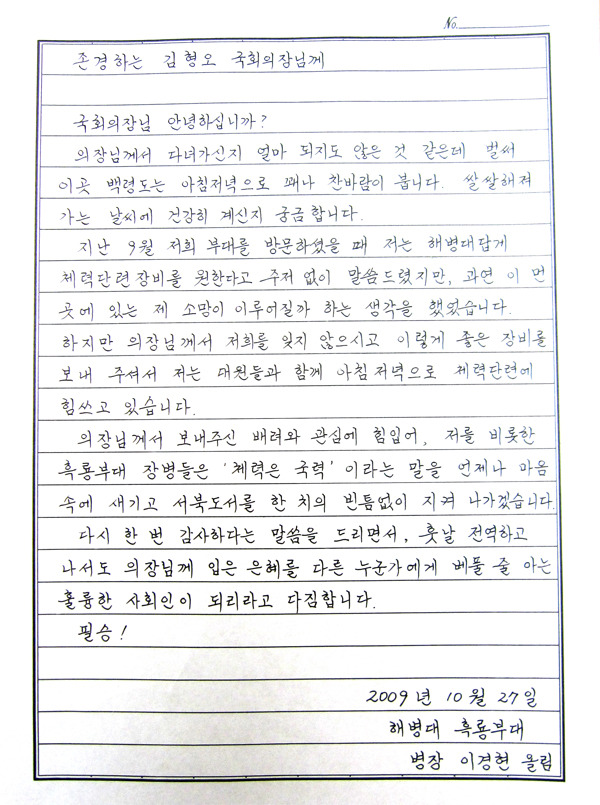 No.
존경하는 김형오 국회의장님께
국회의장님 안녕하십니까?
의장님께서 다녀가신지 얼마 되지도 않은 것 같은데 벌써
이곳 백령도는 아침저녁으로 꽤나 찬바람이 붑니다. 쌀쌀해져
가는 날씨에 건강히 계신지 궁금합니다.
지난 9월 저희 부대를 방문하셨을 때 저는 해병대답게
체력단련장비를 원한다고 주저 없이 말씀드렸지만, 과연 이 먼
곳에 있는 제 소망이 이루어질까 하는 생각을 했었습니다.
하지만 의장님께서 저희를 잊지 않으시고 이렇게 좋은 장비를
보내 주셔서 저는 대원들과 함께 아침저녁으로 체력단련에
힘쓰고 있습니다.
의장님께서 보내주신 배려와 관심에 힘입어, 저를 비롯한
흑룡부대 장병들은 '체력은 국력' 이라는 말을 언제나 마음
속에 새기고 서북도서를 한 치의 빈틈없이 지켜 나가겠습니다.
다시 한 번 감사하다는 말씀을 드리면서, 훗날 전역하고
나서도 의장님께 입은 은혜를 다른 누군가에게 베풀 줄 아는
훌륭한 사회인이 되리라고 다짐합니다.
필승!
2009년 10월 27일
해병대 흑룡부대
병장 이경현 올림